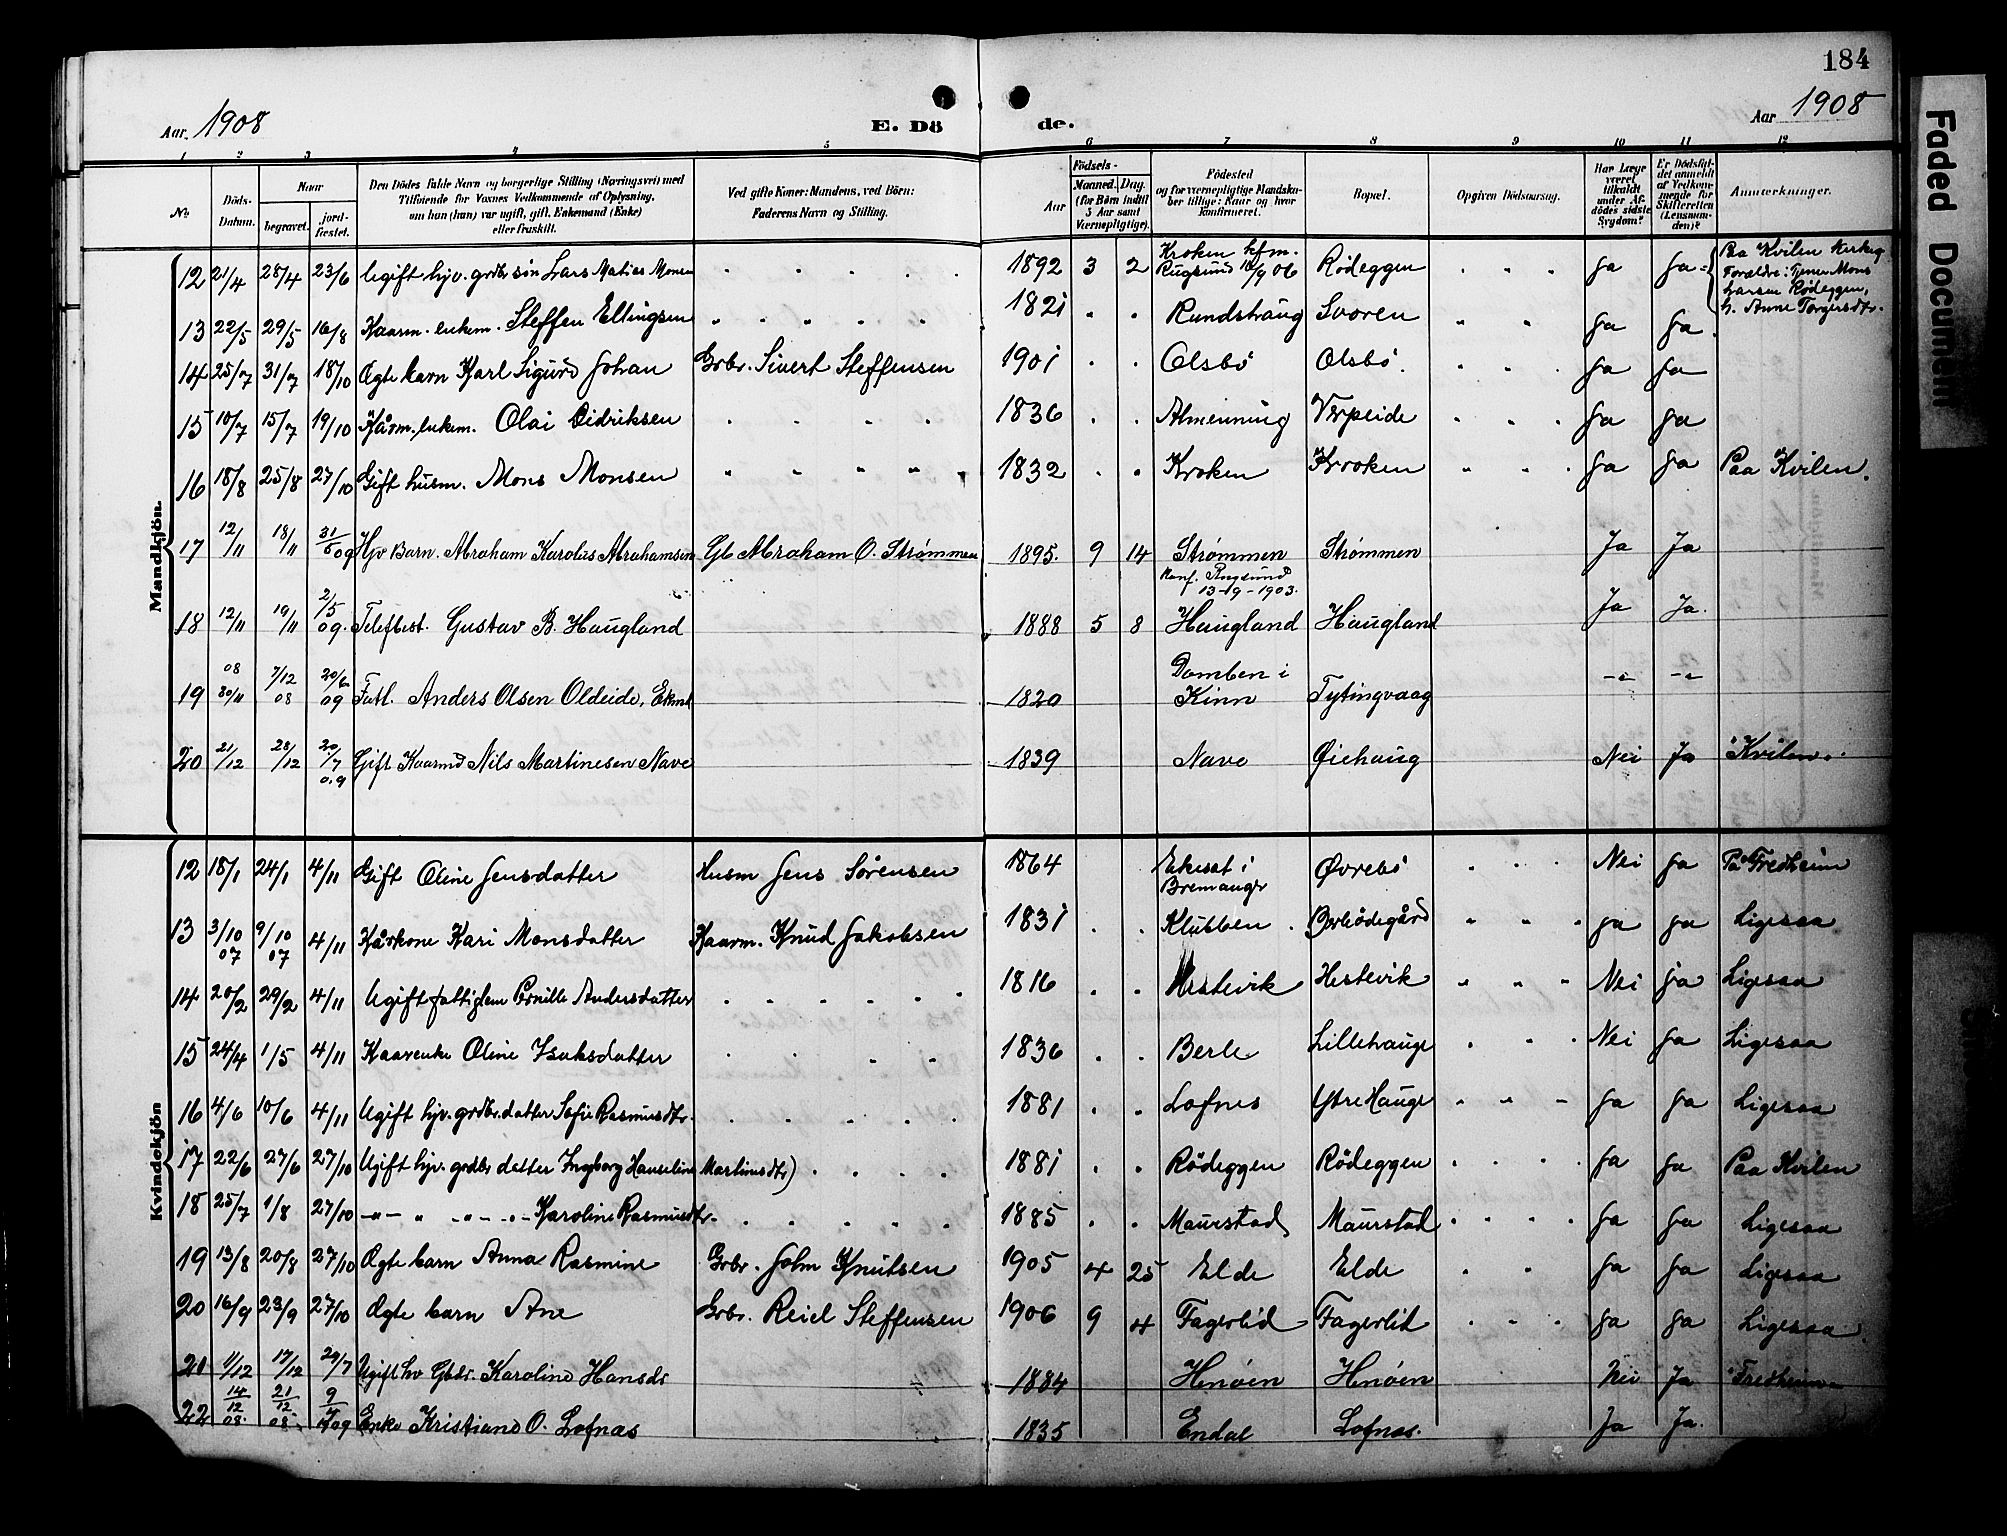 184
Aar. 1908 E. Dö de. Aar 1908
1 2 3 4 5 6 7 8 9 10 11 12
№
Döds-Datum.
Naar
begravet.
jord-fæstet.
Den Dödes fulde Navn og borgerlige Stilling (Næringsvei) med
Tilföiende for Voxnes Vedkommende af Oplysning,
om han (hun) var ugift, gift, Enkemand (Enke)
eller fraskilt.
Ved gifte Koner: Mandens, ved Börn:
Faderens Navn og Stilling.
Födsels-
Aar
Maaned. Dag.
(for Börn indtil
5 Aar samt
Værnepligtige).
Födested
og for værnepligtige Mandska-
ber tillige: Naar og hvor
konfirmeret.
Bopæl.
Opgiven Dödsaarsag.
Har Læge
været
tilkaldt
under Af-
dödes sidste
Sygdom?
Er Dödsfal-
det anmeldt
af Vedkom-
mende for
Skifteretten
(Lensman-
den)?
Anmærkninger.
Mandkjön.
12 21/4 28/4 23/6 Ugift hjv. grdbr sön Lars Matias Monsen 1892 3 2 Kroken kfm. Rugsund /9 06 Rödeggen Ja Ja Paa Kvilen
Forældre: Mons
Larsen Rödeggen,
h. Anne Torgersdtr.
13 22/5 29/5 16/8 Kaarm. enkem. Steffen Ellingsen 1821 Rundstraug Svoren Ja Ja
14 25/7 31/7 18/10 Ægte barn Karl Sigurd Johan Grbr. Sivert Steffensen 1901 Olsbö Olsbö Ja Ja
15 10/7 15/7 19/10 Kårm. enkem. Olai Didriksen 1836 Almenning Verpeide Ja Ja
16 18/8 25/8 27/10 Gift husm. Mons Monsen 1832 Kroken Kroken Ja Ja Paa Kvilen.
17 12/11 18/11 31/5 09 Hjv Barn. Abraham Karolus Abrahamsen Gb Abraham O. Strømmen 1895. 9 14 Strømmen Strømmen Ja Ja
18 12/11 19/11 2/5 09. Telefbest. Gustav B. Haugland 1888 5 8 Konf. Rugsund 13-9-1903. Haugland Haugland Ja Ja.
19 08 30/11 7/12 08 20/6 09 Fattl. Anders Olsen Oldeide, Ekmd 1820 Domben i Kinn Tytingvaag -"- -"-
20 21/12 28/12 20/7 09 Gift Kaarmd Nils Martinesen Nave 1839 Nave Øiehaug Nei Ja "Kvilen".
Kvindekjön
12 18/1 24/1 4/11 Gift Oline Jensdatter Husm Jens Sörensen 1864 Ekeset i Bremanger Øvrebö Nei Ja Paa Fredheim
13 3/10 07 9/10 07 4/11 Kårkone Kari Monsdatter Kaarm. Knud Jakobsen 1831 Klubben Berlödegård Ja Ja Ligesaa
14 20/2 29/2 4/11 Ugift fattiglem Pernille Andersdatter 1816 Hestevik Hestevik Nei Ja Ligesaa
15 24/4 1/5 4/11 Kaarenke Oline Isaksdatter 1836 Berle Lillehauge Nei Ja Ligesaa
16 4/6 10/6 4/11 Ugift hjv. grdbr. datter Sofie Rasmusdtr. 1881 Lofnes Ytre Hauge Ja Ja Ligesaa
17 22/6 27/6 27/10 Ugift hjv. grdbr datter Ingborg Hanseline Martinusdtr) 1881 Rödeggen Rödeggen Ja Ja Paa Kvilen
18 25/7 1/8 27/10 -"- " -"-"- Karoline Rasmusdtr. 1885 Maurstad Maurstad Ja Ja Ligesaa
19 13/8 20/8 27/10 Ægte barn Anna Rasmine Grbr. John Knutsen 1905 4 25 Elde Elde Ja Ja Ligesaa
20 16/9 23/9 27/10 Ægte barn Ane Grbr. Reiel Steffensen 1906 9 4 Fagerlid Fagerlid Ja Ja Ligesaa
21 11/12 17/12 29/7 Ugift hv Gbdr. Karoline Hansdr 1884 Henøen Henøen Nei Ja "Fredheim"
22 14/12 08. 21/12 08. 9/7 09 Enke Kristiane O. Lofnæs 1835 Endal Lofnæs. Ja Ja.
Faded Document